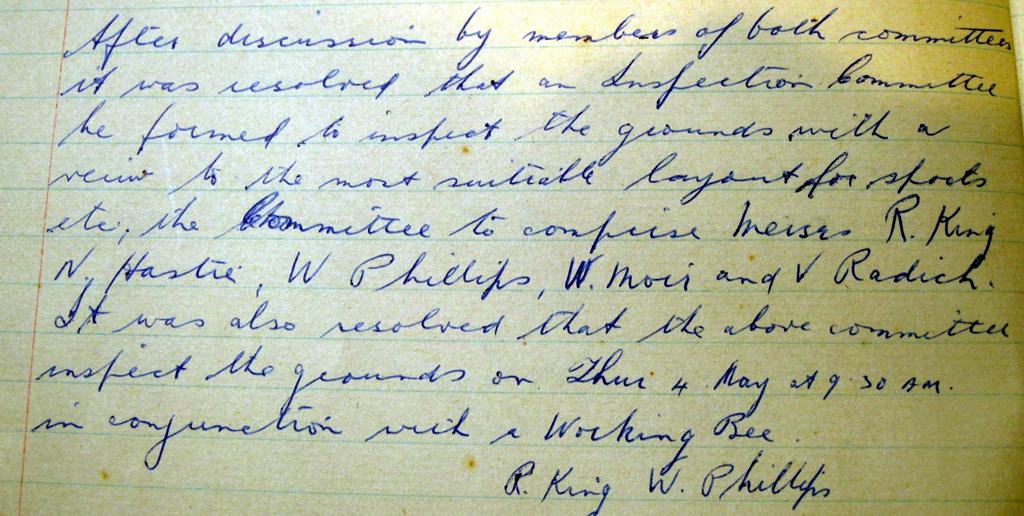 After discussion by members of both committees
it was resolved that an Inspection Committee
be formed to inspect the grounds with a
view to the most suitable layout for sports
etc, the Committee to comprise Messrs R. King
N. Hastie, W Phillips, W. Moir and V Radich.
It was also resolved that the above committee
inspect the grounds on Thur 4 May at 9.30 AM.
in conjunction with a Working Bee.
R. King W. Phillips